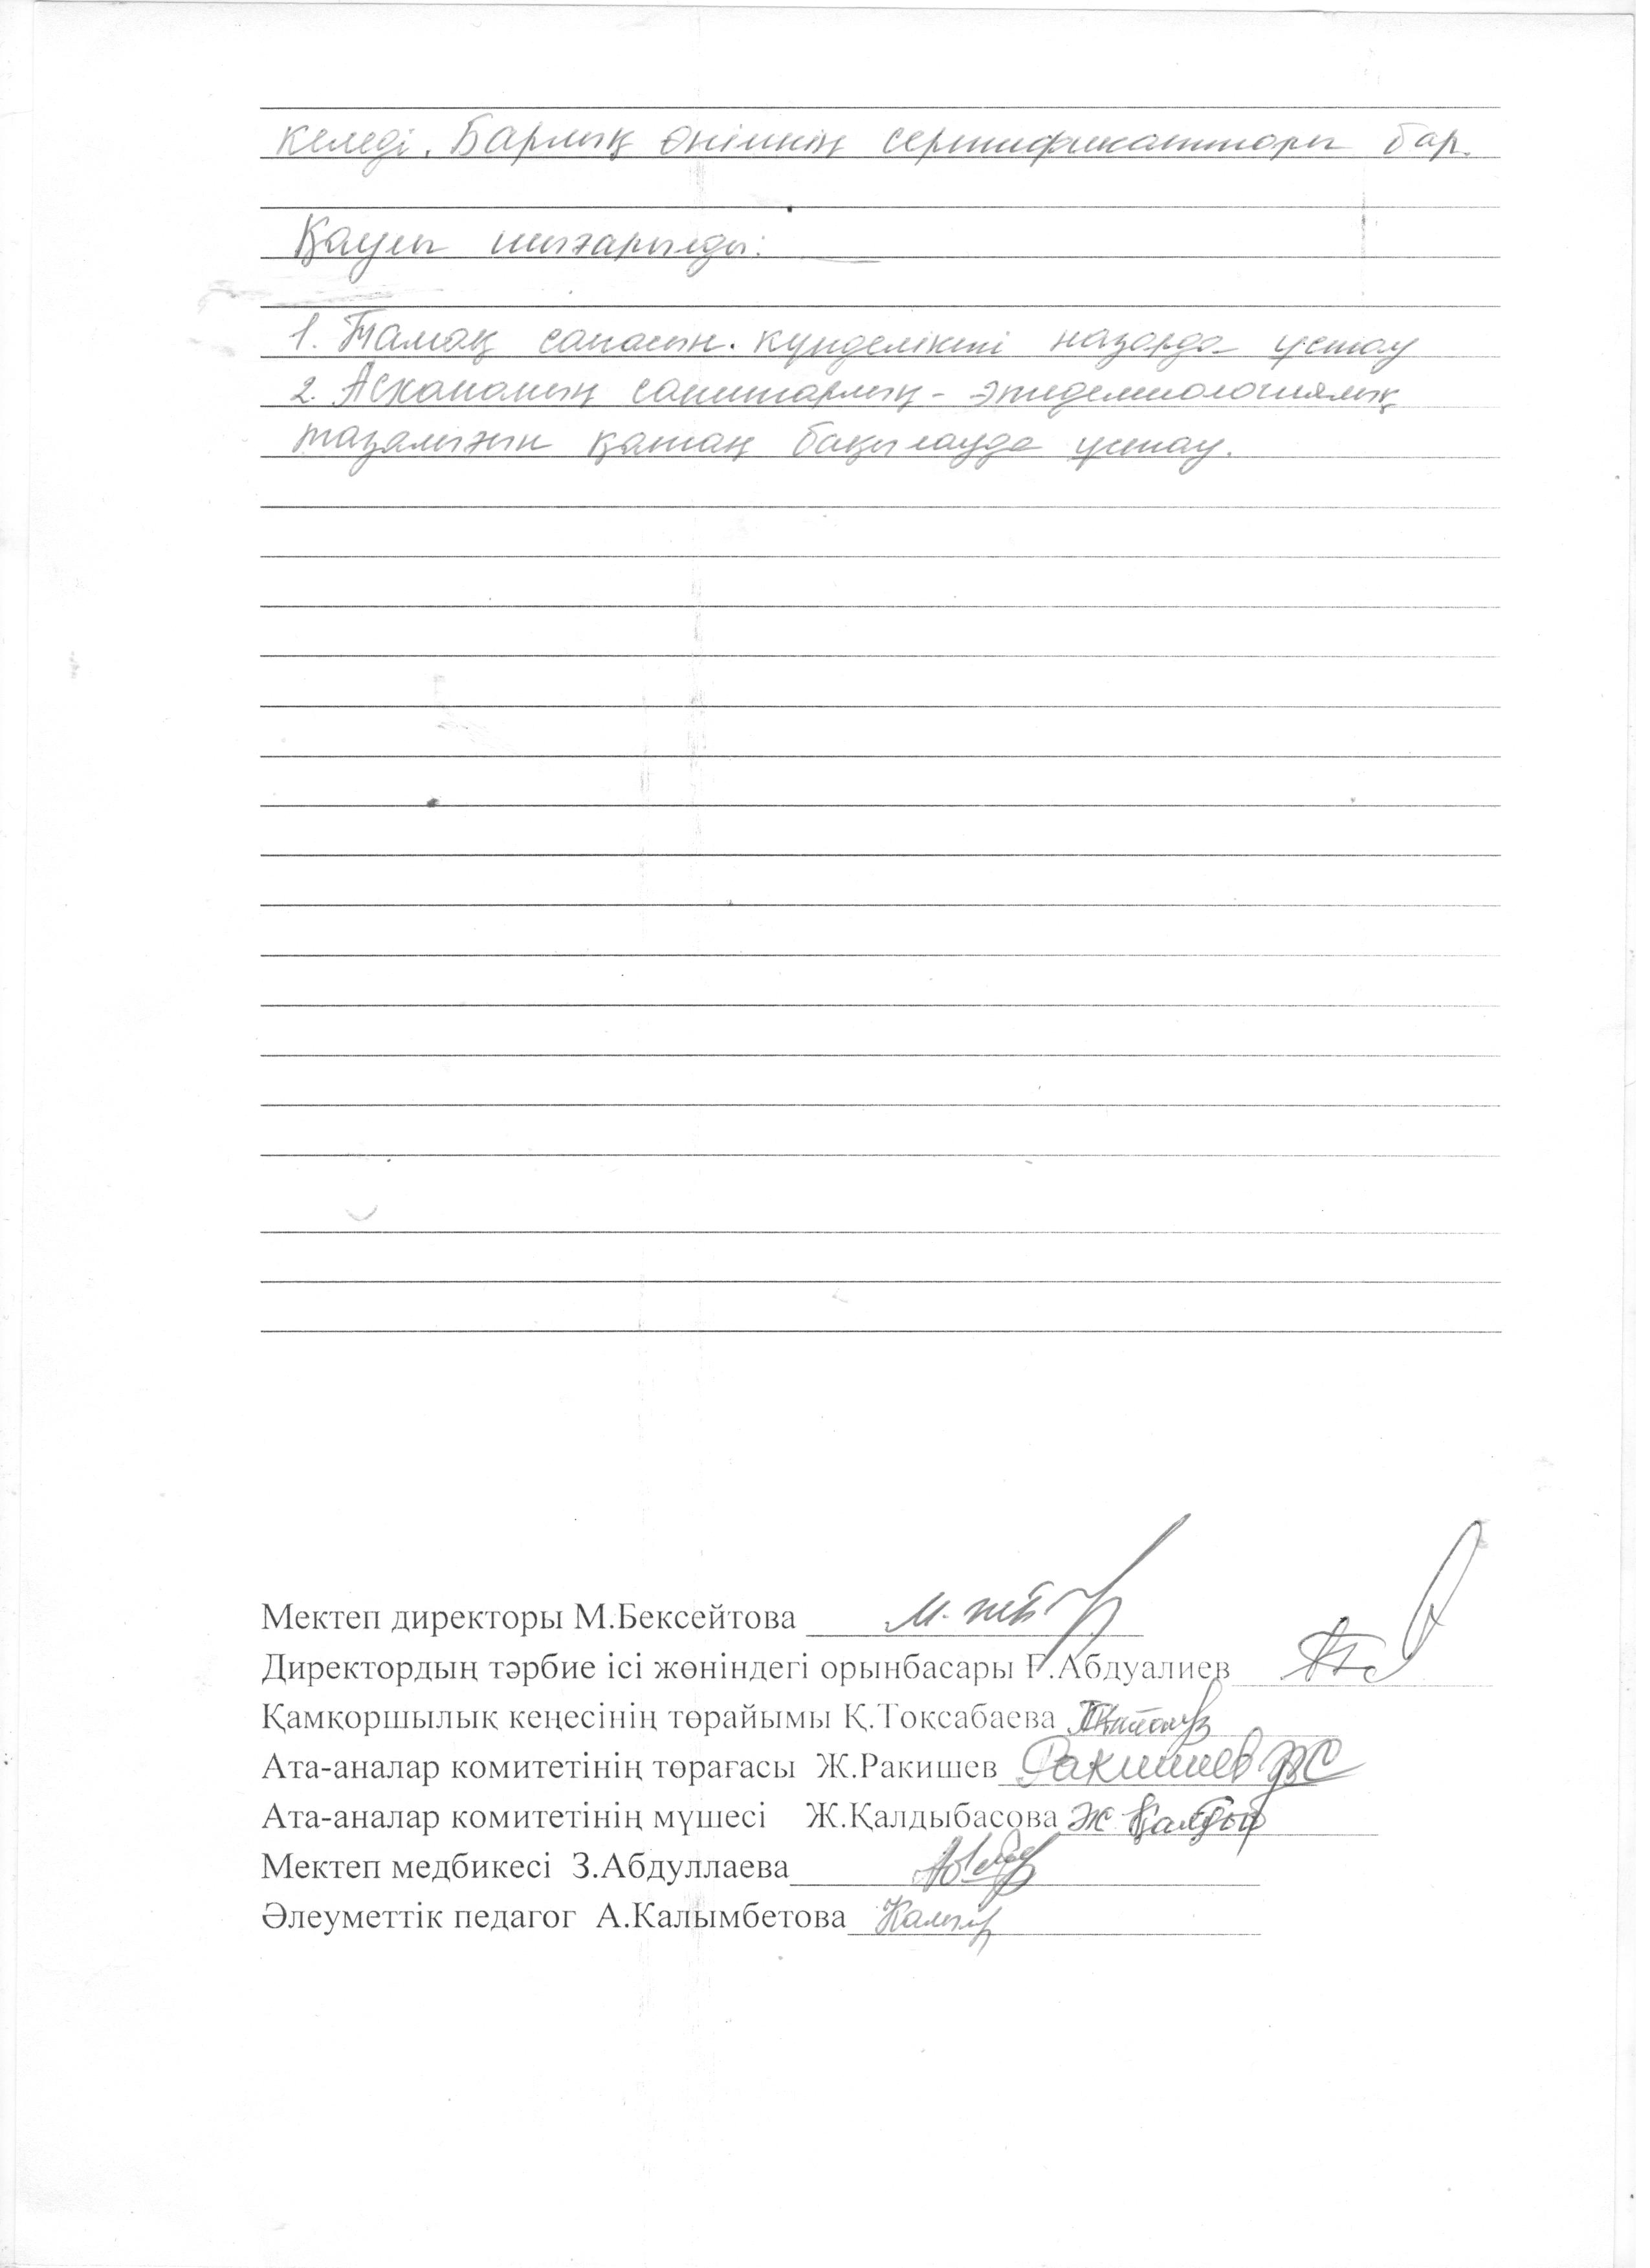 келеді. Барлық өнімнің сертификаттары бар.
Қаулы шығарылды:
1. Тамақ сапасын күнделікті назарда ұстау
2. Асхананың санитарлық - эпидемиологиялық
тазалығын қатаң бақылауда ұстау.
Мектеп директоры М.Бексейтова
Директордың тәрбие ісі жөніндегі орынбасары Г.Абдуалиев
Қамқоршылық кеңесінің төрайымы Қ.Токсабаева
Ата-аналар комитетінің төрағасы Ж.Ракишев Ракишев ЖС
Ата-аналар комитетінің мүшесі Ж.Қалдыбасова Ж Қалдыб
Мектеп медбикесі З.Абдуллаева
Әлеуметтік педагог А.Калымбетова